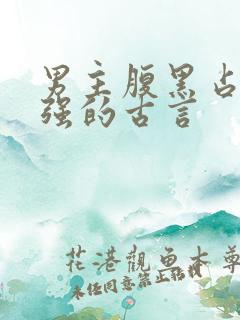 男主腹黑占
强的古言
花港觀魚本尊
未经同意禁止转载